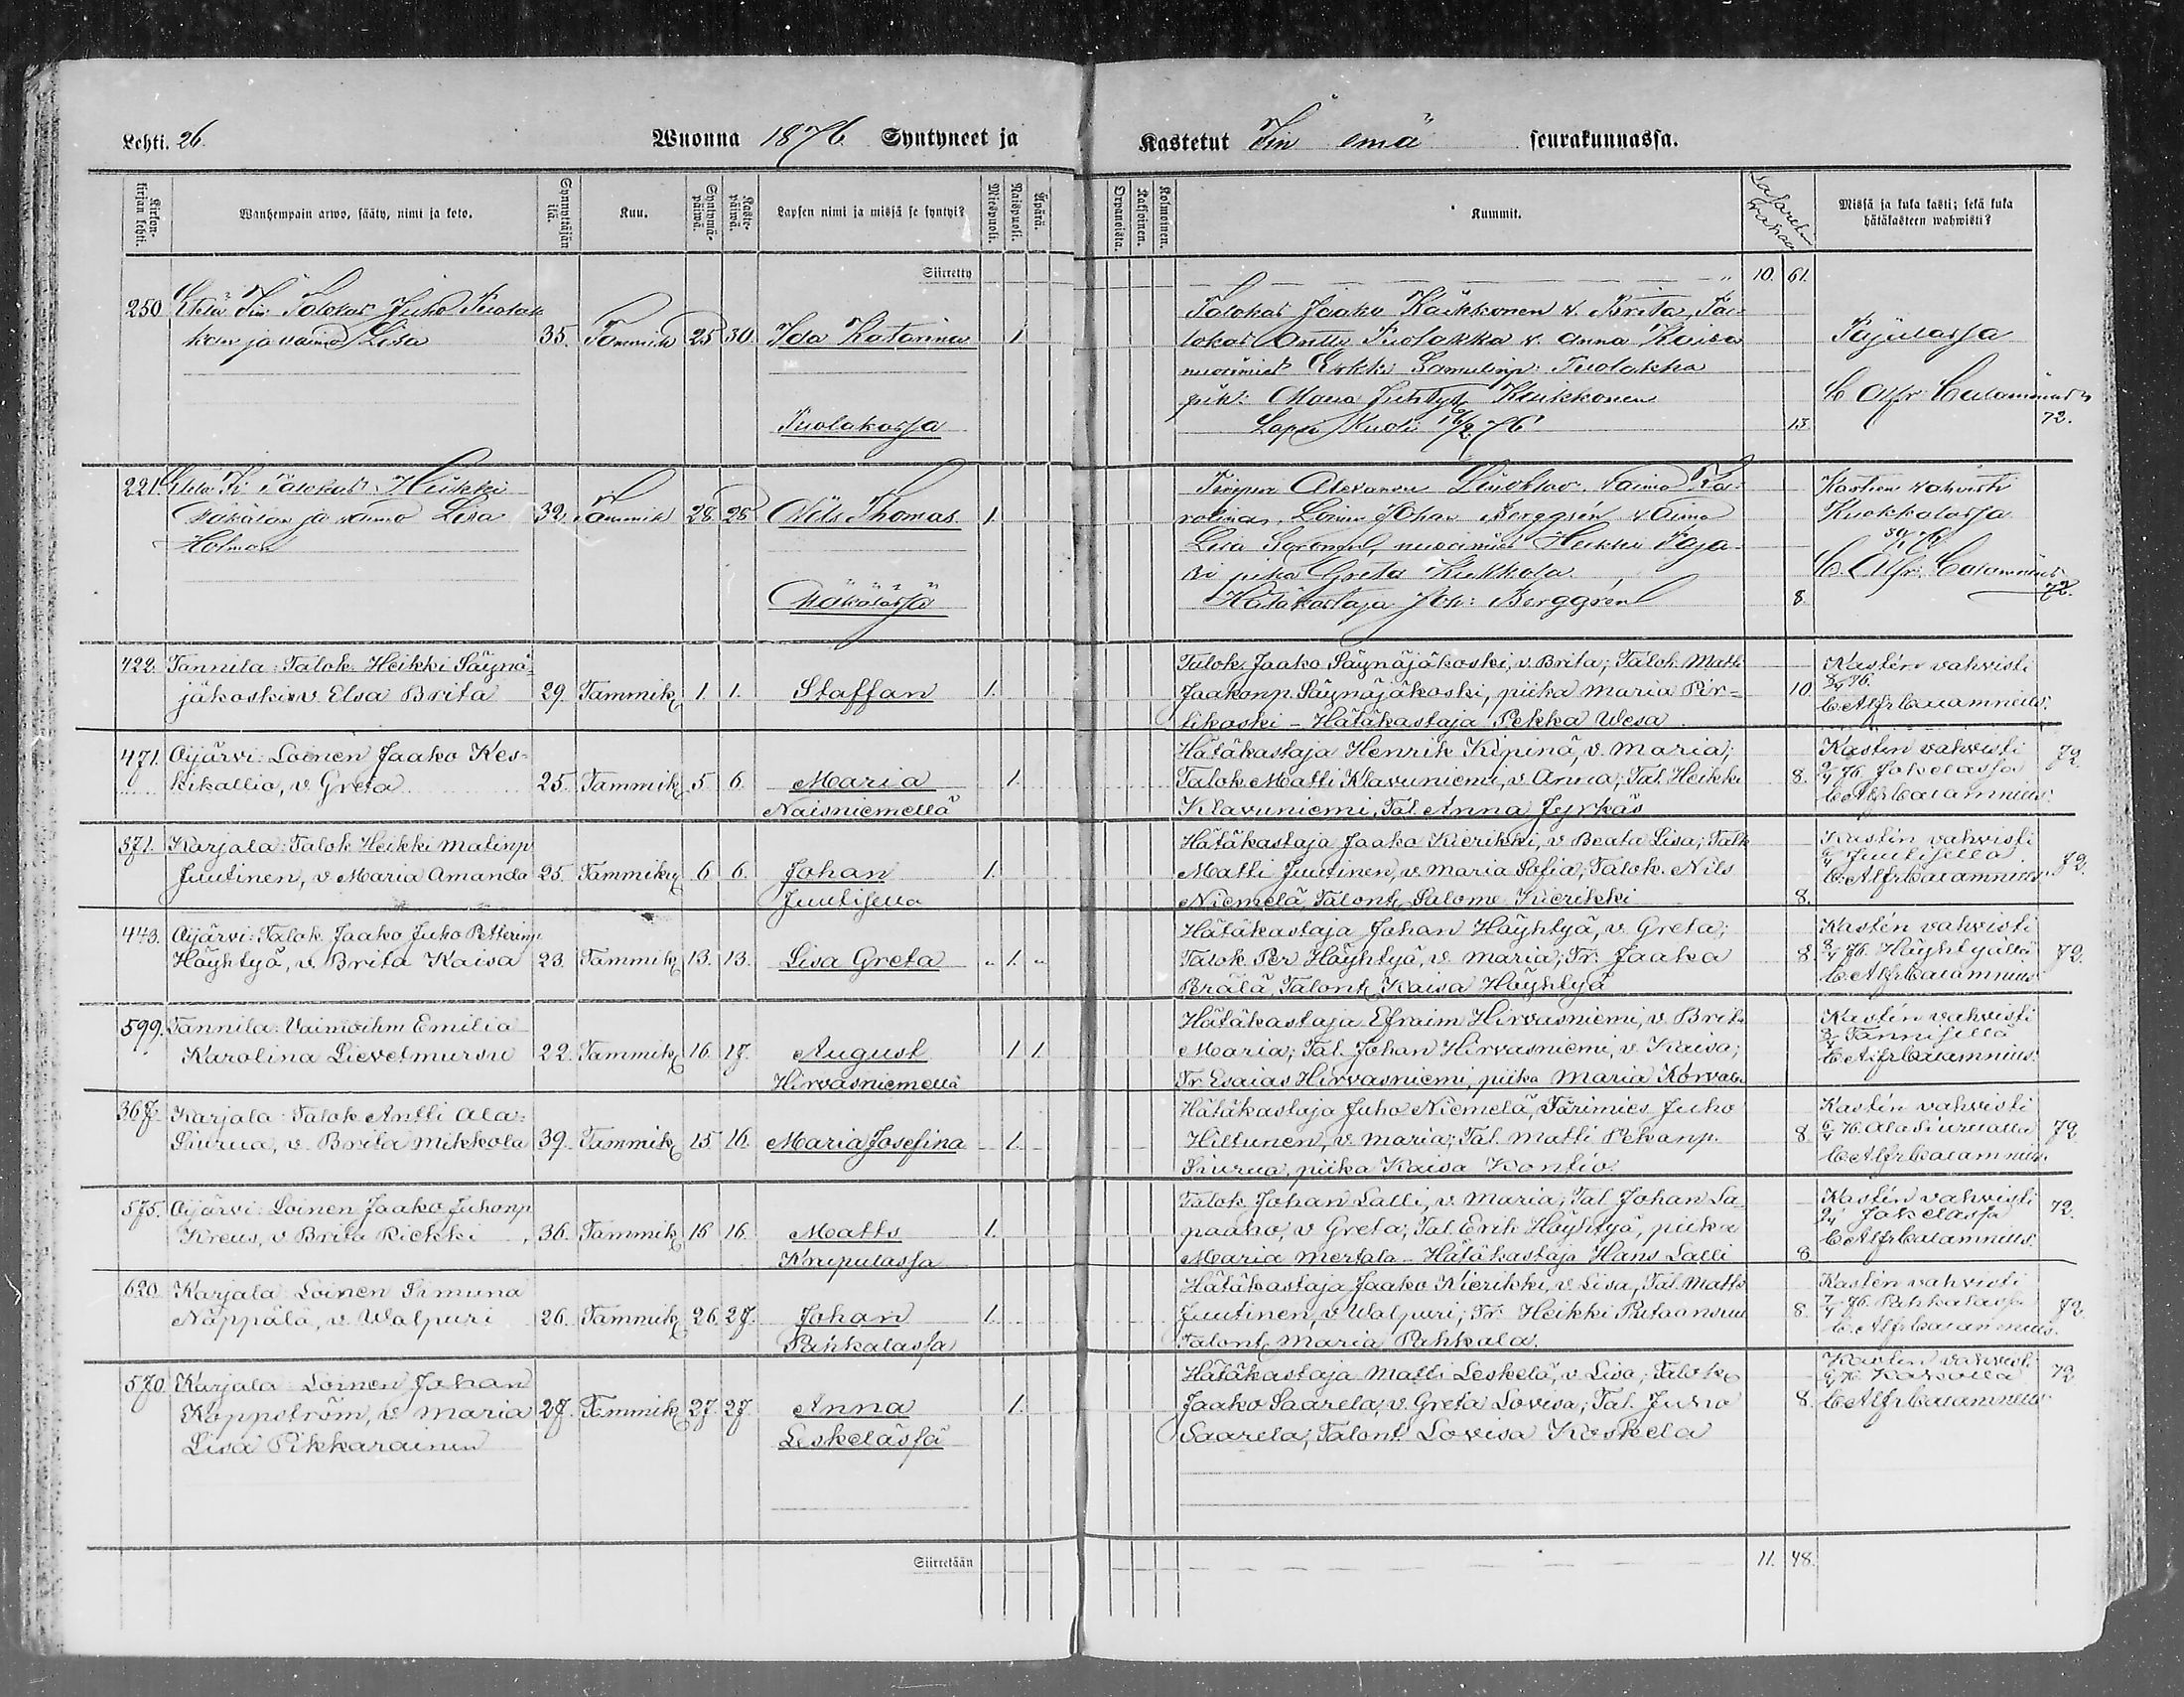 Lehti. 26.
Wuonna 1876. Syntyneet ja
Kastetut Iin emä seurakunnassa.
Kirkon-kirjan lehti.
Wanhempain arwo, sääty, nimi ja koto.
Synnyttäjän ikä.
Kuu.
Syntymä-päiwä.
Kaste-päiwä.
Lapsen nimi ja missä se syntyi?
Miespuoli.
Naispuoli.
Äpärä.
Orpanoista.
Kaksoinen.
Kolmoinen.
Kummit.
Missä ja kuka kasti; sekä kuka hätäkasteen wahwisti?
Siirretty
10. 61.
250 Talokas Juho
ja vaimo Lisa 35. Tammik 25 30. Ida Katarina 1
Talokas Jaako v. Brita, Ta-
lokas Antti v. Anna Kaisa
Erkki
Maria
Lapsi Kuoli 76
13.
C Alfr Calamnius
72.
221. Heikki
ja vaimo Lisa 32. Tammik 28. 28 Nils Thomas. 1.
Holman
Alexander vaimo Ka-
rolina, Loinen Johan Berggren v Anna
Lisa Heikki Paja-
ri piika Greta
Hätäkastaja Joh: Berggren
8
Kasteen vahvisti
Kuokkalassa
C. Alfr. Calamnius
72.
422. Tannila: Talok. Heikki Säynä-
jäkoski v. Elsa Brita 29. Tammik 1. 1. Staffan 1.
Talok. Jaako Säynäjäkoski, v. Brita; Talok. Matti
Jaakonp. Säynäjäkoski, piika Maria Pir-
tikoski - Hätäkastaja Pekka Wesa
10
Kastén vahvisti
C. Alfr Calamnius.
471. Oijärvi: Loinen Jaako Kes-
kikallio, v. Greta 25. Tammik 5 6. Maria 1.
Naisniemellä
Hätäkastaja Henrik Kipinä, v. Maria;
Talok Matti Klavuniemi, v. Anna; Tal. Heikki
Klavuniemi, Tal. Anna Jyrkäs
8.
Kastén vahvisti
Jokelassa
C Alfr Calamnius.
72.
571. Karjala: Talok Heikki Matinp
Juutinen, v Maria Amanda 25. Tammik 6 6. Johan 1.
Juutisella
Hätäkastaja Jaako Kierikki, v Beata Lisa; Talk
Matti Juutinen, v. Maria Sofia; Talok. Nils
Niemelä, Talont. Salome Kierikki
8.
Kastén vahvisti
Juutisella
C. Alfr Calamnius.
72.
443. Oijärvi: Talok. Jaako Juho Petterinp
Häyhtyä, v. Brita Kaisa 23. Tammik 13. 13. Lisa Greta 1.
Hätäkastaja Johan Häyhtyä, v. Greta;
Talok Per Häyhtyä, v. Maria; Tr. Jaako
Brälä, Talont. Kaisa Häyhtyä
8
Kastén vahvisti
76. Häyhtyällä
C. Alfr Calamnius
72.
599. Tannila: Vaimoihm Emilia
Karolina Lievetmursu 22. Tammik 16. 17. August 1 1.
Hirvasniemellä
Hätäkastaja Efraim Hirvasniemi, v. Brita
Maria; Tal. Johan Hirvasniemi, v. Kaisa;
Tr. Esaias Hirvasniemi, piika Maria
Kastén vahvisti
C Alfr Calamnius.
367. Karjala: Talok Antti Ala-
Siurua, v. Brita Mikkola 39. Tammik 15 16. Maria Josefina 1.
Hätäkastaja Juho Niemelä, Färimies Juho
Hiltunen, v. Maria; Tal. Matti Pekanp.
Siurua, piika Kaisa Kontio.
8
Kastén vahvisti
76. Ala Siurualla
C Alfr Calamnius.
72
575. Oijärvi: Loinen Jaako Juhonp
Kreus, v Brita Riekki 36. Tammik 16 16. Matts 1.
Talok Johan Lalli, v. Maria; Tal. Johan La-
paaho, v Greta; Tal. Erik Häyhtyä, piika
Maria Mertala - Hätäkastaja Hans Lalli
8
Kastén vahvisti
Jokelassa
C Alfr Calamnius.
72.
620. Karjala: Loinen Simuna
Näppälä, v. Walpuri 26. Tammik 26. 27. Johan 1.
Pahkalassa
Hätäkastaja Jaako Kierikki, v. Lisa, Tal. Matts
Juutinen, v Walpuri; Tr. Heikki
Talont. Maria Pahkala.
8.
Kastén vahvisti
76. Pahkalassa
C. Alfr Calamnius.
72
570. Karjala: Loinen Johan
Koppström, v. Maria 27. Tammik 27 27. Anna 1.
Lisa Pikkarainen Leskelässä
Hätäkastaja Matti Leskelä, v Lisa; Talok.
Jaako Saarela, v. Greta Lovisa; Tal. Juho
Saarela; Talont. Lovisa Koskela
8.
Kastén vahvisti
C Alfr Calamnius
72
Siirretään
11. 48.